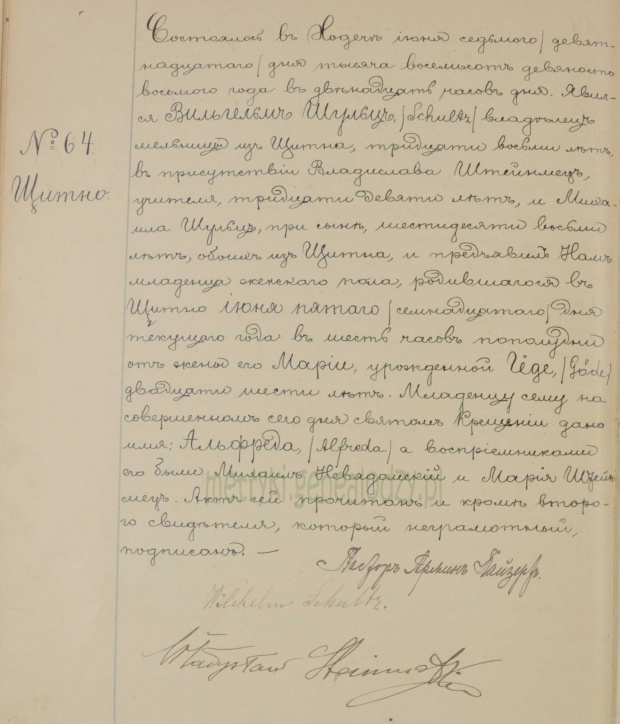 № 64.
Щитно.
Состоялось въ Ходечѣ іюня седьмого /девят-
надцатаго/ дня тысяча восемьсотъ девяносто
восьмого года въ двѣнадцать часовъ дня. Явил-
ся Вильгельмъ Шульцъ, /Schultz/ владѣлецъ
мельницы изъ Щитна, тридцати восьми лѣтъ,
въ присутствіи Владислава Штейнмецъ,
учителя, тридцати девяти лѣтъ, и Миха-
ила Шульцъ, при сынѣ, шестидесяти восьми
лѣтъ, обоихъ изъ Щитна, и предъявилъ Намъ
младенца женскаго пола, родившагося въ
Щитно іюня пятаго /семнадцатаго/ дня
текущаго года въ шесть часовъ пополудни
отъ жены его Маріи, урожденной Геде, /Göde/
двадцати шести лѣтъ. Младенцу сему на
совершенномъ сего дня святомъ Крещеніи дано
имя: Альфреда, /Alfreda/ а воспріемниками
его были Михаилъ Невядомскій и Марія Штейн-
мецъ. Актъ сей прочитанъ и кромѣ второ-
го свидѣтеля, который неграмотный,
подписанъ. —
Пасторъ
Wilhelm Schultz.
Władysław Steinmetz
metryki.genealodzy.pl